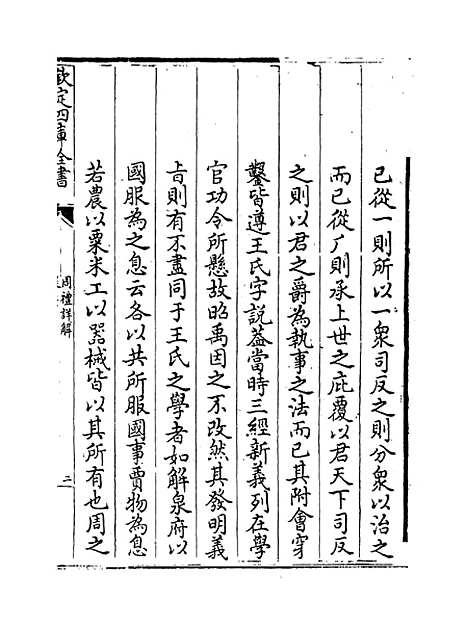 已從一則所以一衆司反之則分衆以治之
而已從厂則承上世之庇覆以君天下司反
之則以君之爵為執事之法而已其附會穿
鑿皆遵王氏字說葢當時三經新義列在學
官功令所懸故昭禹因之不改然其發明義
㫖則有不盡同于王氏之學者如解泉府以
國服為之息云各以其所服國事賈物為息
若農以粟米工以器械皆以其所有也周之
欽定四庫全書
周禮詳解
二